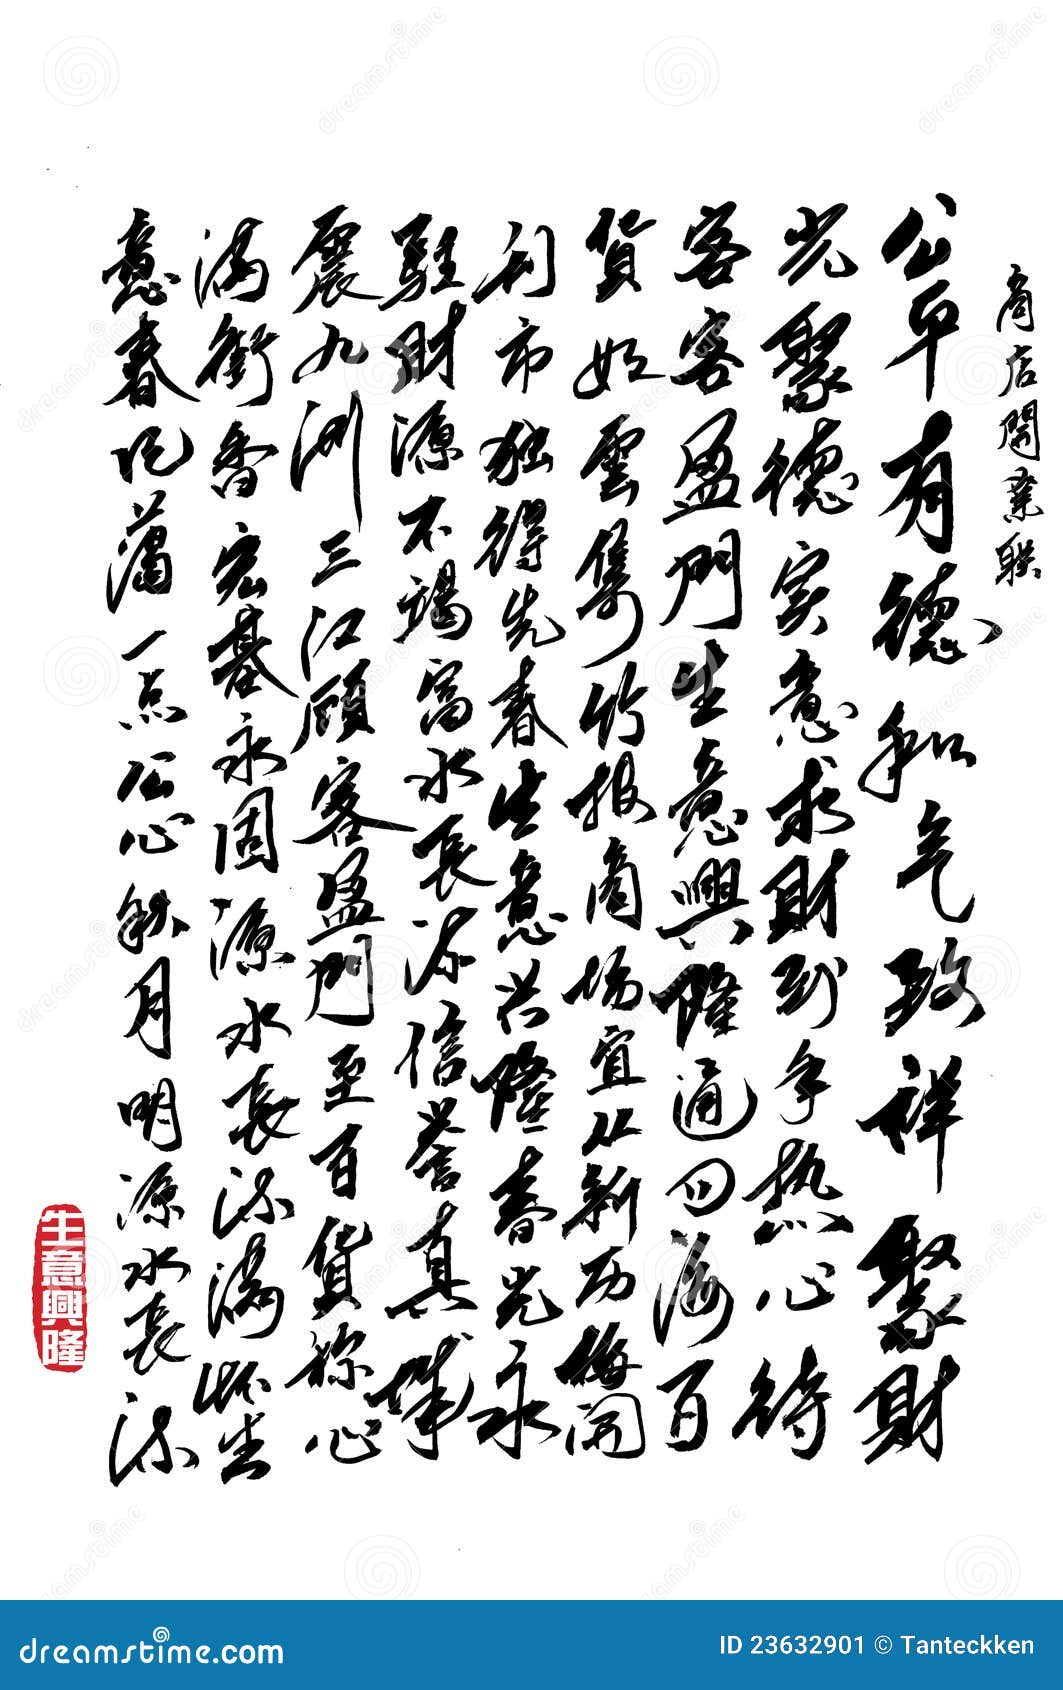 商店開業联
公平有德和气致祥聚财
光聚德实意求财到手热心待
客客盈門生意興隆通四海百
貨如雲集竹报商场宜从新功梅開
利市独得先春生意兴隆春光永
駐财源不竭富水長流信誉真诚
震九洲三江顾客盈門至百貨称心
满街香宏基永固源水長流满坐
意春风满一点公心秋月明源水長流
生意興隆
dreamstime.com
ID 23632901 © Tanteckken